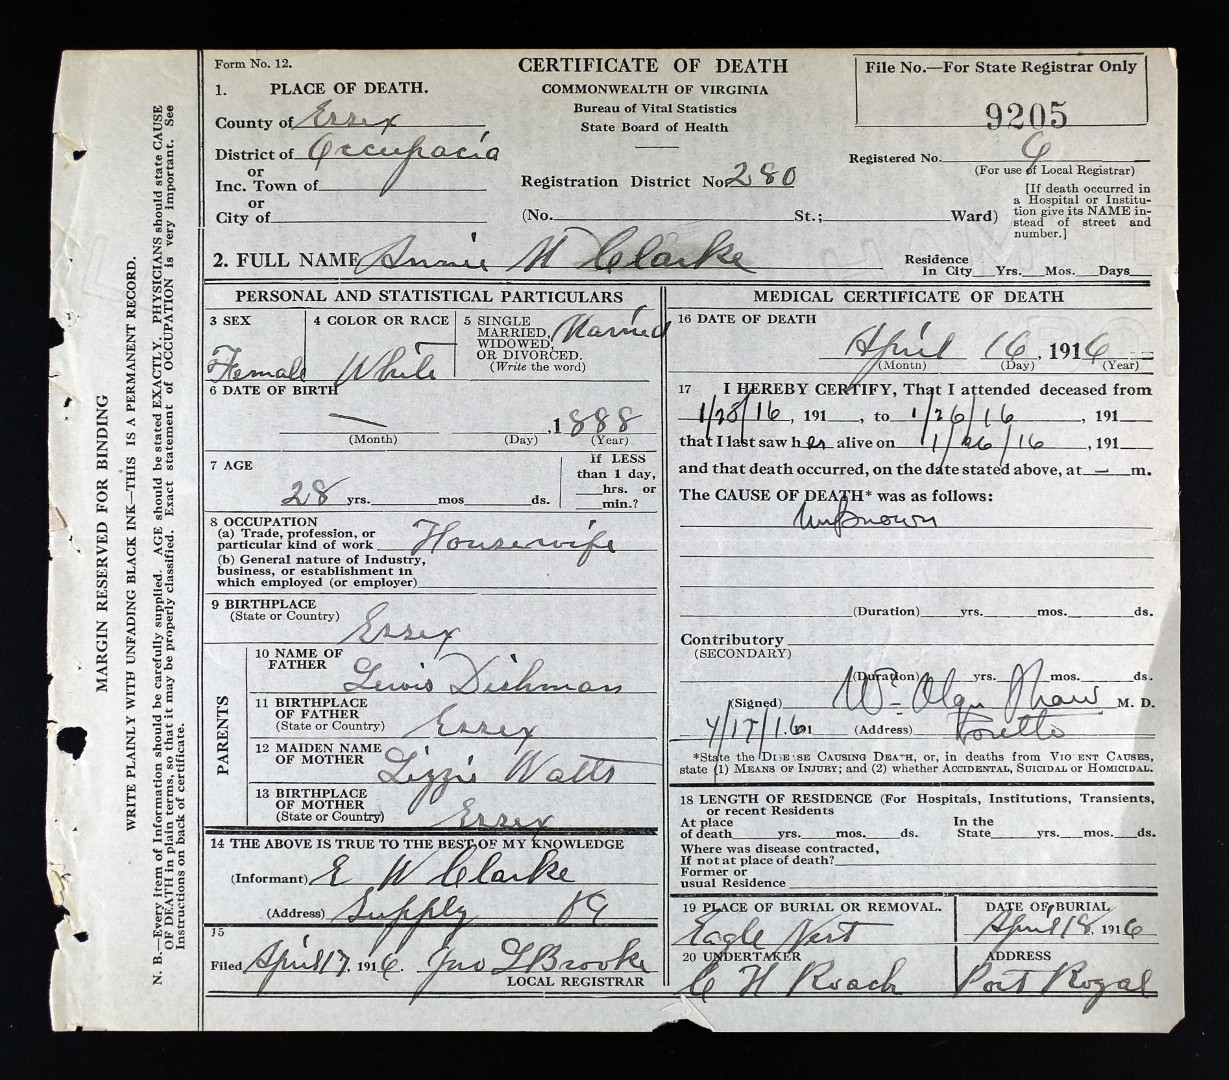 MARGIN RESERVED FOR BINDING
WRITE PLAINLY WITH UNFADING BLACK INK—THIS IS A PERMANENT RECORD.
N. B.—Every item of Information should be carefully supplied. AGE should be stated EXACTLY. PHYSICIANS should state CAUSE
OF DEATH in plain terms, so that it may be properly classified. Exact statement of OCCUPATION is very important. See
Instructions on back of certificate.
Form No. 12.
CERTIFICATE OF DEATH
COMMONWEALTH OF VIRGINIA
Bureau of Vital Statistics
State Board of Health
File No.—For State Registrar Only
9205
1. PLACE OF DEATH.
County of Essex
District of Occupacia
or
Inc. Town of
or
City of
Registration District No. 280
Registered No. 6
(For use of Local Registrar)
(No. St.; Ward)
[If death occurred in
a Hospital or Institu-
tion give its NAME in-
stead of street and
number.]
2. FULL NAME Annie W Clarke
Residence
In City Yrs. Mos. Days
PERSONAL AND STATISTICAL PARTICULARS
3 SEX
Female
4 COLOR OR RACE
White
5 SINGLE
MARRIED,
WIDOWED,
OR DIVORCED.
(Write the word)
Married
6 DATE OF BIRTH
— ,1888
(Month) (Day) (Year)
7 AGE
28 yrs. mos ds.
If LESS
than 1 day,
hrs. or
min.?
8 OCCUPATION
(a) Trade, profession, or
particular kind of work Housewife
(b) General nature of Industry,
business, or establishment in
which employed (or employer)
9 BIRTHPLACE
(State or Country)
Essex
PARENTS
10 NAME OF
FATHER
Lewis Dishman
11 BIRTHPLACE
OF FATHER
(State or Country) Essex
12 MAIDEN NAME
OF MOTHER Lizzie Watts
13 BIRTHPLACE
OF MOTHER
(State or Country) Essex
14 THE ABOVE IS TRUE TO THE BEST OF MY KNOWLEDGE
(Informant) E W Clarke
(Address) Supply Va
15
Filed April 17, 1916. Jno L Brooke
LOCAL REGISTRAR
MEDICAL CERTIFICATE OF DEATH
16 DATE OF DEATH
April 16, 1916
(Month) (Day) (Year)
17 I HEREBY CERTIFY, That I attended deceased from
1/25/16, 191 to 1/26/16, 191
that I last saw her alive on 1/26/16, 191
and that death occurred, on the date stated above, at — m.
The CAUSE OF DEATH* was as follows:
Unknown
(Duration) yrs. mos. ds.
Contributory
(SECONDARY)
(Duration) yrs. mos. ds.
(Signed) Wm M. D.
4/17/16 191 (Address) Loretto
*State the DISEASE CAUSING DEATH, or, in deaths from VIOLENT CAUSES,
state (1) MEANS OF INJURY; and (2) whether ACCIDENTAL, SUICIDAL or HOMICIDAL.
18 LENGTH OF RESIDENCE (For Hospitals, Institutions, Transients,
or recent Residents
At place
of death yrs. mos. ds.
In the
State yrs. mos. ds.
Where was disease contracted,
If not at place of death?
Former or
usual Residence
19 PLACE OF BURIAL OR REMOVAL.
Eagle Nest
DATE OF BURIAL
April 18, 1916
20 UNDERTAKER
C H Roach
ADDRESS
Port Royal